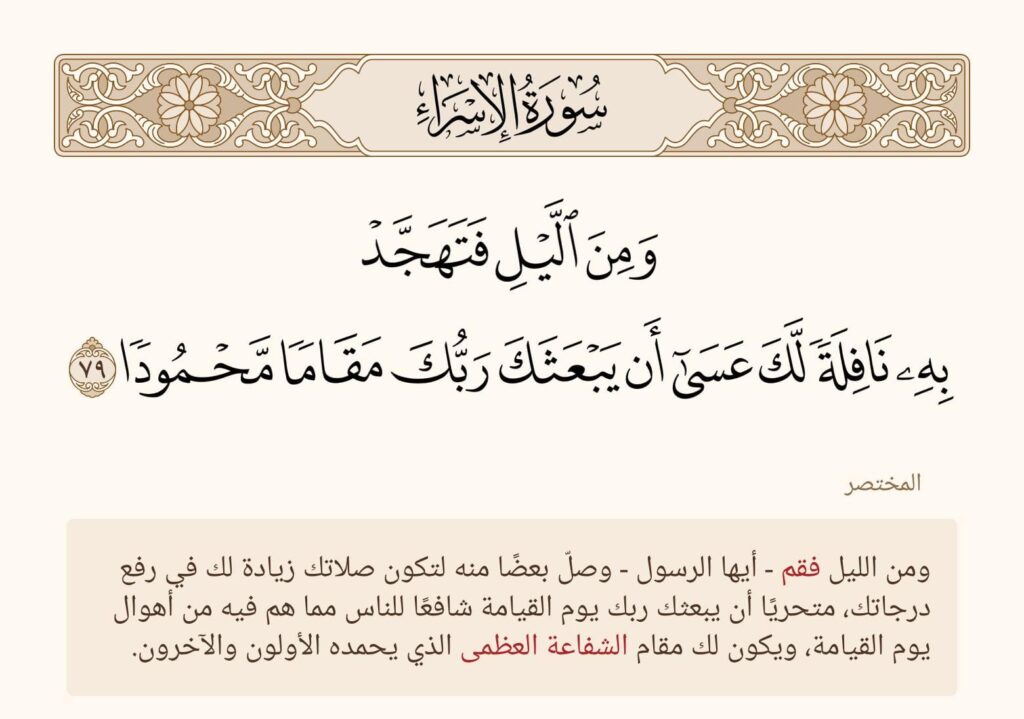 سُورَةُ الإِسْرَاءِ
وَمِنَ ٱلَّيۡلِ فَتَهَجَّدۡ
بِهِۦ نَافِلَةٗ لَّكَ عَسَىٰٓ أَن يَبۡعَثَكَ رَبُّكَ مَقَامٗا مَّحۡمُودٗا ٧٩
المختصر
ومن الليل فقم - أيها الرسول - وصلّ بعضًا منه لتكون صلاتك زيادة لك في رفع
درجاتك، متحريًا أن يبعثك ربك يوم القيامة شافعًا للناس مما هم فيه من أهوال
يوم القيامة، ويكون لك مقام الشفاعة العظمى الذي يحمده الأولون والآخرون.